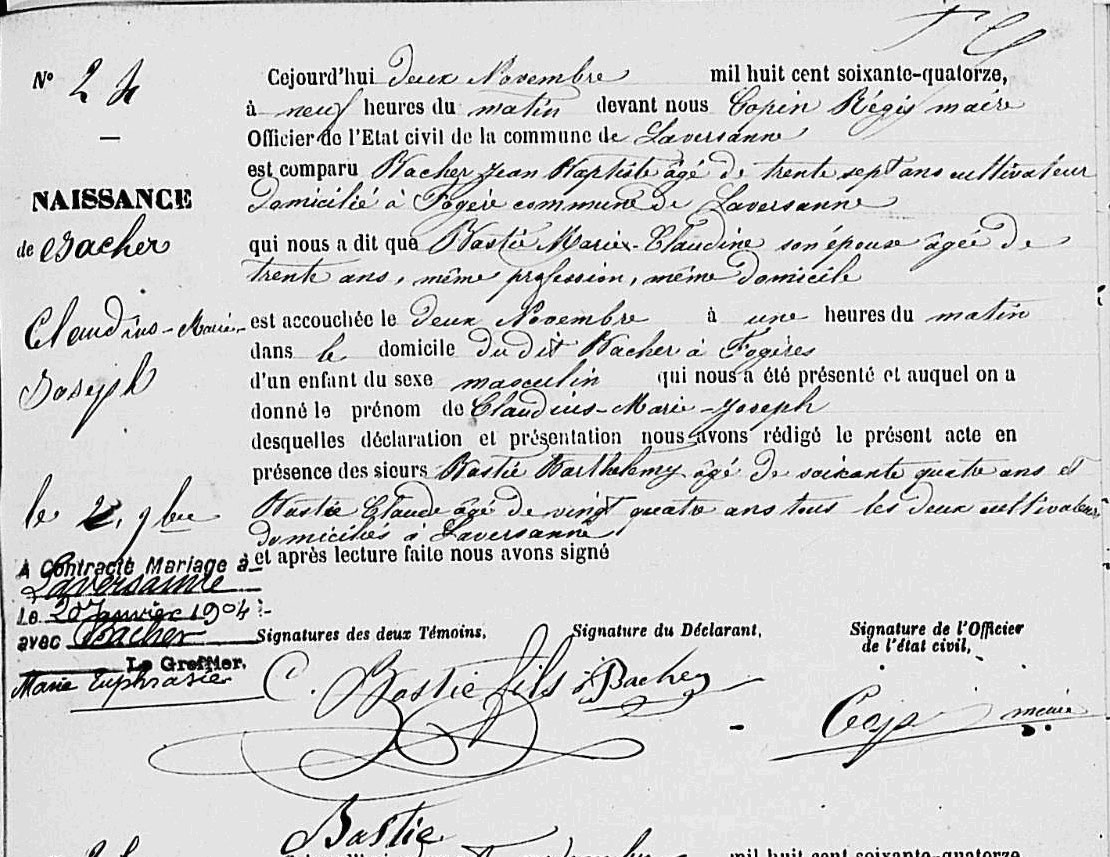 N° 24
—
NAISSANCE
de Bacher
Claudius-Marie-
Joseph
le 2, 9bre
À Contracté Mariage à
Laversanne
Le 20 Janvier 1904
avec Bacher
Le Greffier,
Marie Euphrasie
Cejourd'hui deux Novembre mil huit cent soixante-quatorze,
à neuf heures du matin devant nous Copin Régis maire
Officier de l'Etat civil de la commune de Laversanne
est comparu Bacher Jean Baptiste âgé de trente sept ans cultivateur
domicilié à Fogère commune de Laversanne
qui nous a dit que Bastie Marie-Claudine son épouse âgée de
trente ans, même profession, même domicile
est accouchée le deux Novembre à une heures du matin
dans le domicile du dit Bacher à Fogères
d'un enfant du sexe masculin qui nous a été présenté et auquel on a
donné le prénom de Claudius-Marie-Joseph
desquelles déclaration et présentation nous avons rédigé le présent acte en
présence des sieurs Bastie Barthelemy âgé de soixante quatre ans et
Bastie Claude âgé de vingt quatre ans tous les deux cultivateurs
domiciliés à Laversanne
et après lecture faite nous avons signé
Signatures des deux Témoins, Signature du Déclarant, Signature de l'Officier
de l'état civil,
C. Bastie fils Bacher maire
Bastie
mil huit cent soixante-quatorze